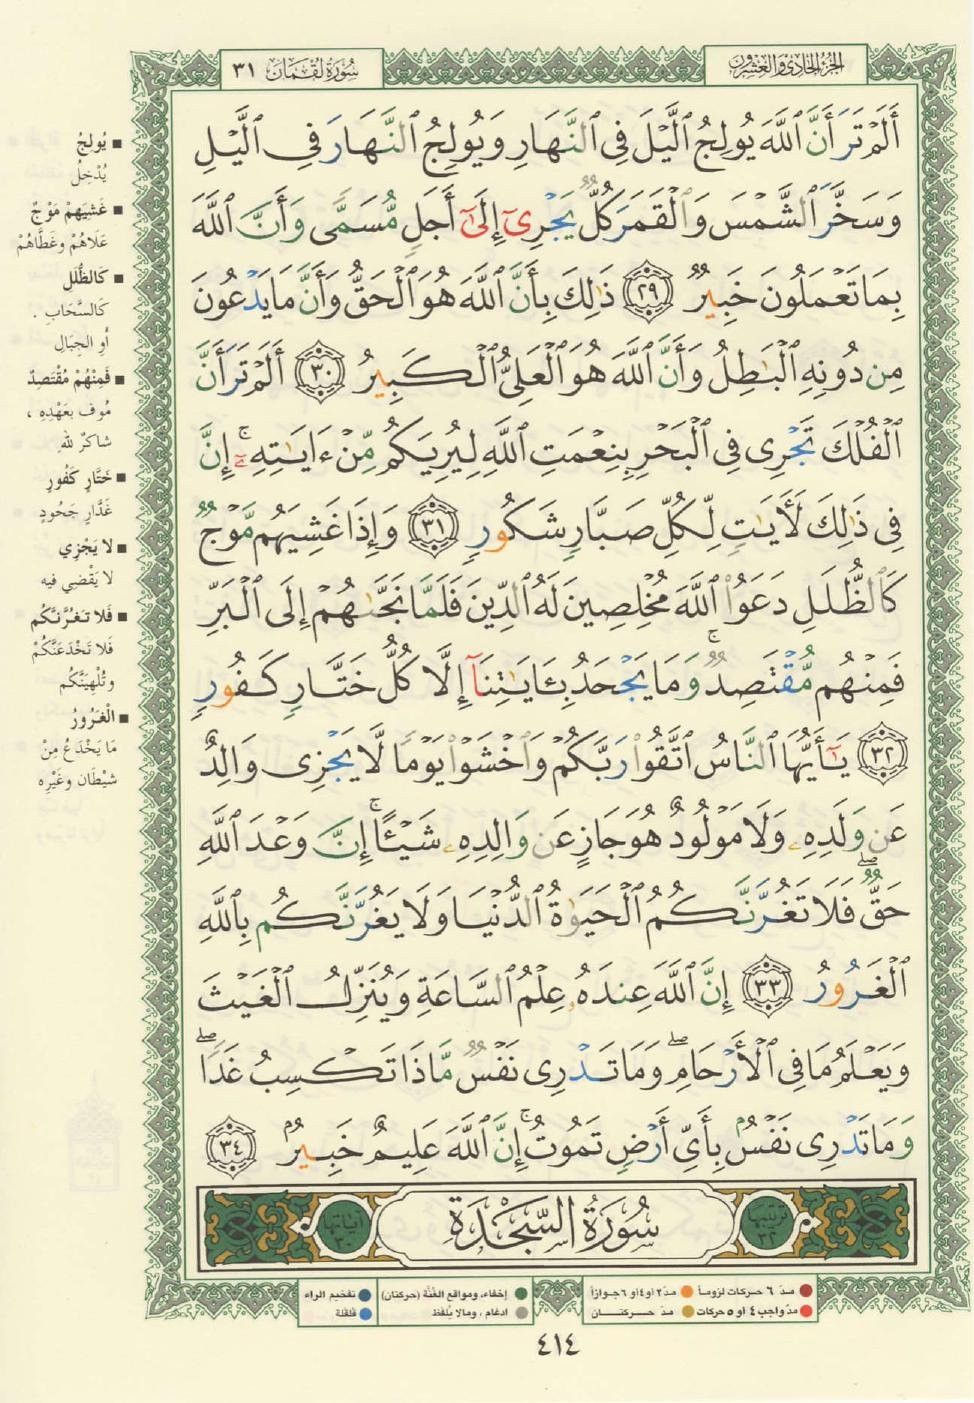 سُورَةُ لُقْمَان ٣١
الجُزْءُ الحَادِي وَالعِشْرُون
أَلَمْ تَرَ أَنَّ ٱللَّهَ يُولِجُ ٱلَّيْلَ فِى ٱلنَّهَارِ وَيُولِجُ ٱلنَّهَارَ فِى ٱلَّيْلِ
وَسَخَّرَ ٱلشَّمْسَ وَٱلْقَمَرَ كُلٌّ يَجْرِىٓ إِلَىٰٓ أَجَلٍ مُّسَمًّى وَأَنَّ ٱللَّهَ
بِمَا تَعْمَلُونَ خَبِيرٌ ٢٩ ذَٰلِكَ بِأَنَّ ٱللَّهَ هُوَ ٱلْحَقُّ وَأَنَّ مَا يَدْعُونَ
مِن دُونِهِ ٱلْبَٰطِلُ وَأَنَّ ٱللَّهَ هُوَ ٱلْعَلِىُّ ٱلْكَبِيرُ ٣٠ أَلَمْ تَرَ أَنَّ
ٱلْفُلْكَ تَجْرِى فِى ٱلْبَحْرِ بِنِعْمَتِ ٱللَّهِ لِيُرِيَكُم مِّنْ ءَايَٰتِهِۦٓ ۚ إِنَّ
فِى ذَٰلِكَ لَءَايَٰتٍ لِّكُلِّ صَبَّارٍ شَكُورٍ ٣١ وَإِذَا غَشِيَهُم مَّوْجٌ
كَٱلظُّلَلِ دَعَوُا۟ ٱللَّهَ مُخْلِصِينَ لَهُ ٱلدِّينَ فَلَمَّا نَجَّىٰهُمْ إِلَى ٱلْبَرِّ
فَمِنْهُم مُّقْتَصِدٌ ۚ وَمَا يَجْحَدُ بِـَٔايَٰتِنَآ إِلَّا كُلُّ خَتَّارٍ كَفُورٍ
٣٢ يَٰٓأَيُّهَا ٱلنَّاسُ ٱتَّقُوا۟ رَبَّكُمْ وَٱخْشَوْا۟ يَوْمًا لَّا يَجْزِى وَالِدٌ
عَن وَلَدِهِۦ وَلَا مَوْلُودٌ هُوَ جَازٍ عَن وَالِدِهِۦ شَيْـًٔا ۚ إِنَّ وَعْدَ ٱللَّهِ
حَقٌّ ۖ فَلَا تَغُرَّنَّكُمُ ٱلْحَيَوٰةُ ٱلدُّنْيَا وَلَا يَغُرَّنَّكُم بِٱللَّهِ
ٱلْغَرُورُ ٣٣ إِنَّ ٱللَّهَ عِندَهُۥ عِلْمُ ٱلسَّاعَةِ وَيُنَزِّلُ ٱلْغَيْثَ
وَيَعْلَمُ مَا فِى ٱلْأَرْحَامِ ۖ وَمَا تَدْرِى نَفْسٌ مَّاذَا تَكْسِبُ غَدًا ۖ
وَمَا تَدْرِى نَفْسٌۢ بِأَىِّ أَرْضٍ تَمُوتُ ۚ إِنَّ ٱللَّهَ عَلِيمٌ خَبِيرٌۢ ٣٤
ترتيبها ٣٢
سُورَةُ السَّجْدَةِ
آياتها ٣٠
■ يُولِجُ
يُدْخِلُ
■ غَشِيَهُمْ مَوْجٌ
عَلَاهُمْ وغَطَّاهُمْ
■ كَالظُّلَلِ
كَالسَّحَابِ .
أو الجِبَالِ
■ فَمِنْهُمْ مُقْتَصِدٌ
مُوفٍ بِعَهْدِهِ ،
شاكرٌ للهِ
■ خَتَّارٍ كَفُورٍ
غَدَّارٍ جَحُودٍ
■ لا يَجْزِي
لا يَقْضِي فيه
■ فَلا تَغُرَّنَّكُم
فَلا تَخْدَعَنَّكُمْ
وتُلْهِيَنَّكُم
■ الْغَرُورُ
مَا يَخْدَعُ مِنْ
شَيْطَانٍ وغَيْرِه
مدّ ٦ حركات لزوماً
مدّ ٢ أو ٤ أو ٦ جوازاً
مدّ واجب ٤ أو ٥ حركات
مدّ حركتان
إخفاء، ومواقع الغُنَّة (حركتان)
ادغام، ومالا يُلفَظ
تفخيم الراء
قلقلة
٤١٤